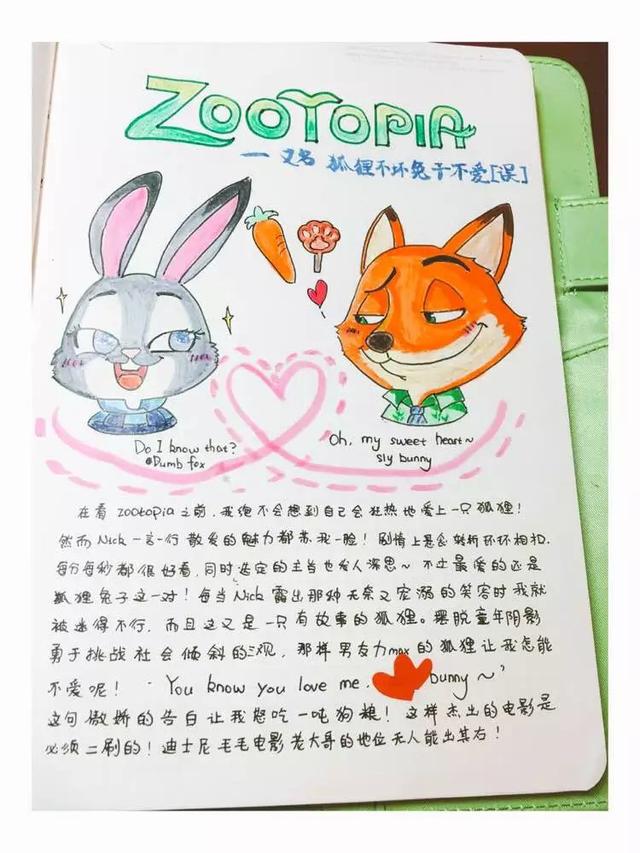 ZOOTOPIA
— 又名 狐狸不坏兔子不爱[误]
Do I know that?
@Dumb fox
Oh, my sweet heart~
sly bunny
在看 zootopia 之前,我绝不会想到自己会狂热地爱上一只狐狸!
然而Nick一言一行 散发的魅力都苏我一脸! 剧情上悬念转折环环相扣.
每分每秒都很好看,同时选定的主旨也发人深思~ 不过最爱的还是
狐狸兔子这一对! 每当Nick露出那种无奈又宠溺的笑容时我就
被迷得不行,而且这又是一只有故事的狐狸。摆脱童年阴影
勇于挑战社会倾斜的三观,那样男友力max的狐狸让我怎能
不爱呢! "You know you love me. bunny~"
这句傲娇的告白让我想吃一吨狗粮! 这样杰出的电影是
必须二刷的! 迪士尼毛毛电影老大哥的地位无人能出其右!